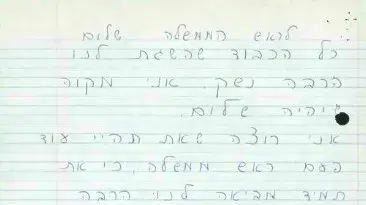 לראש הממשלה שלום
כל הכבוד שהשגת לנו
הרבה נשק. אני מקוה
שיהיה שלום.
אני רוצה שאת תהיי עוד
פעם ראש ממשלה, כי את
תמיד מביאה לנו הרבה